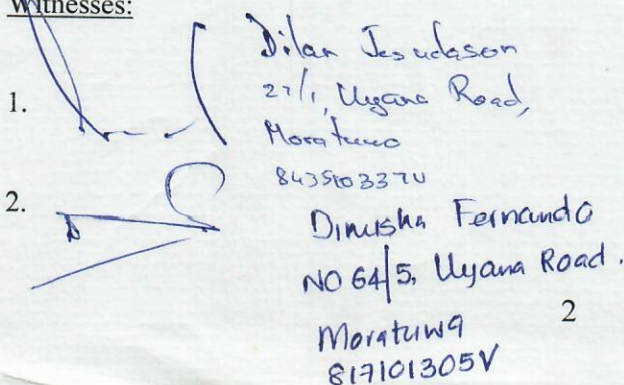 Witnesses:
1.
Dilan Jesudason
27/1, Uyana Road,
Moratuwa
843510337V
2.
Dinusha Fernando
NO 64/5, Uyana Road.
Moratuwa
817101305V
2